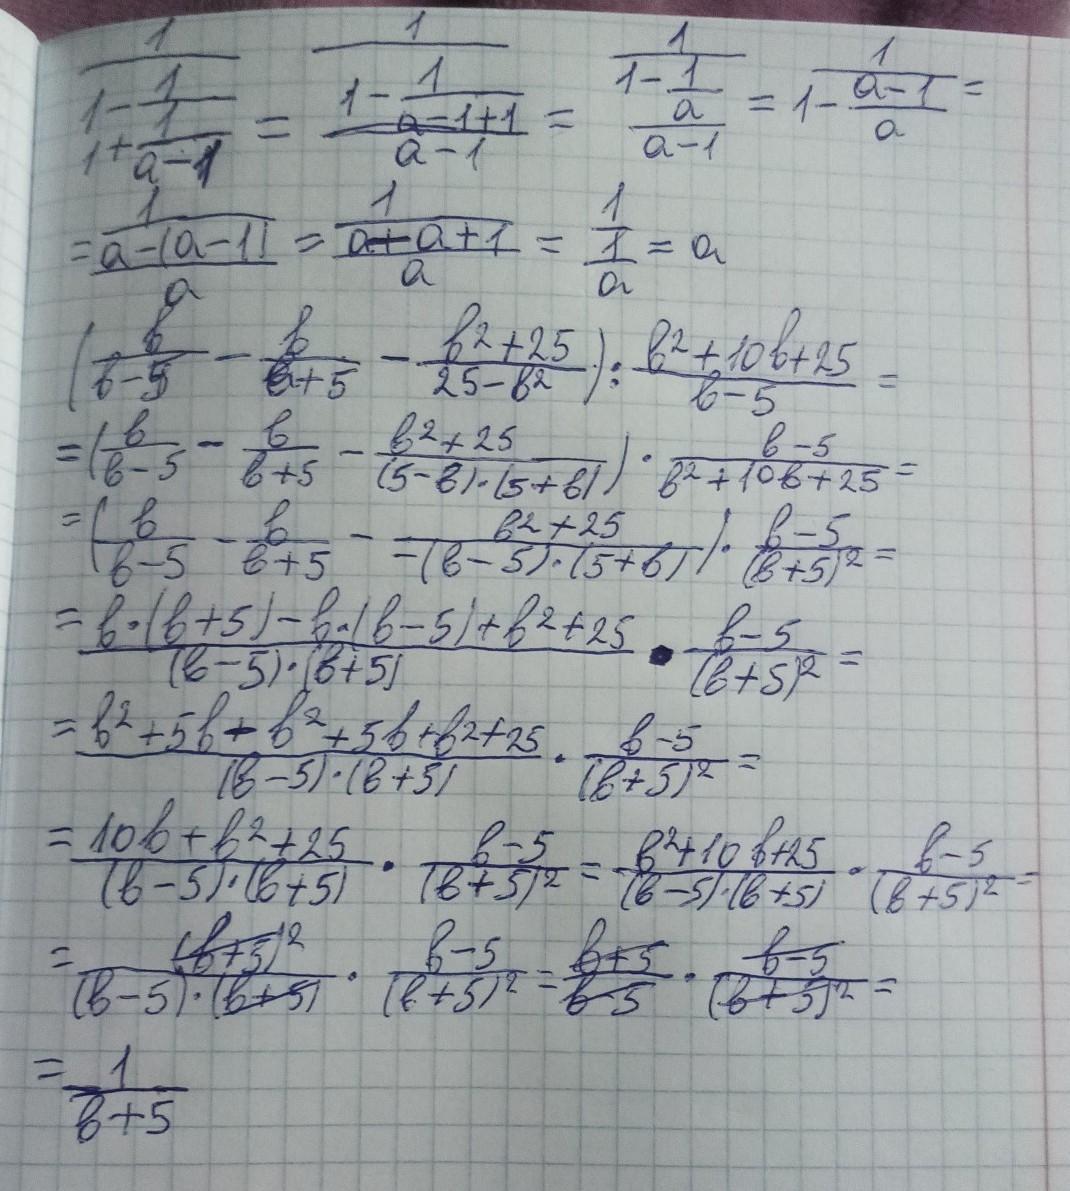 1/(1-1/(1+1/(a-1))) = 1/(1-1/((a-1+1)/(a-1))) = 1/(1-1/(a/(a-1))) = 1/(1-(a-1)/a) =
= 1/((a-(a-1))/a) = 1/((a-a+1)/a) = 1/(1/a) = a
(b/(b-5) - b/(b+5) - (b²+25)/(25-b²)) : (b²+10b+25)/(b-5) =
= (b/(b-5) - b/(b+5) - (b²+25)/((5-b)·(5+b))) · (b-5)/(b²+10b+25) =
= (b/(b-5) - b/(b+5) - (b²+25)/(-(b-5)·(5+b))) · (b-5)/(b+5)² =
= (b·(b+5)-b·(b-5)+b²+25)/((b-5)·(b+5)) · (b-5)/(b+5)² =
= (b²+5b-b²+5b+b²+25)/((b-5)·(b+5)) · (b-5)/(b+5)² =
= (10b+b²+25)/((b-5)·(b+5)) · (b-5)/(b+5)² = (b²+10b+25)/((b-5)·(b+5)) · (b-5)/(b+5)² =
= (b+5)²/((b-5)·(b+5)) · (b-5)/(b+5)² = (b+5)/(b-5) · (b-5)/(b+5)² =
= 1/(b+5)